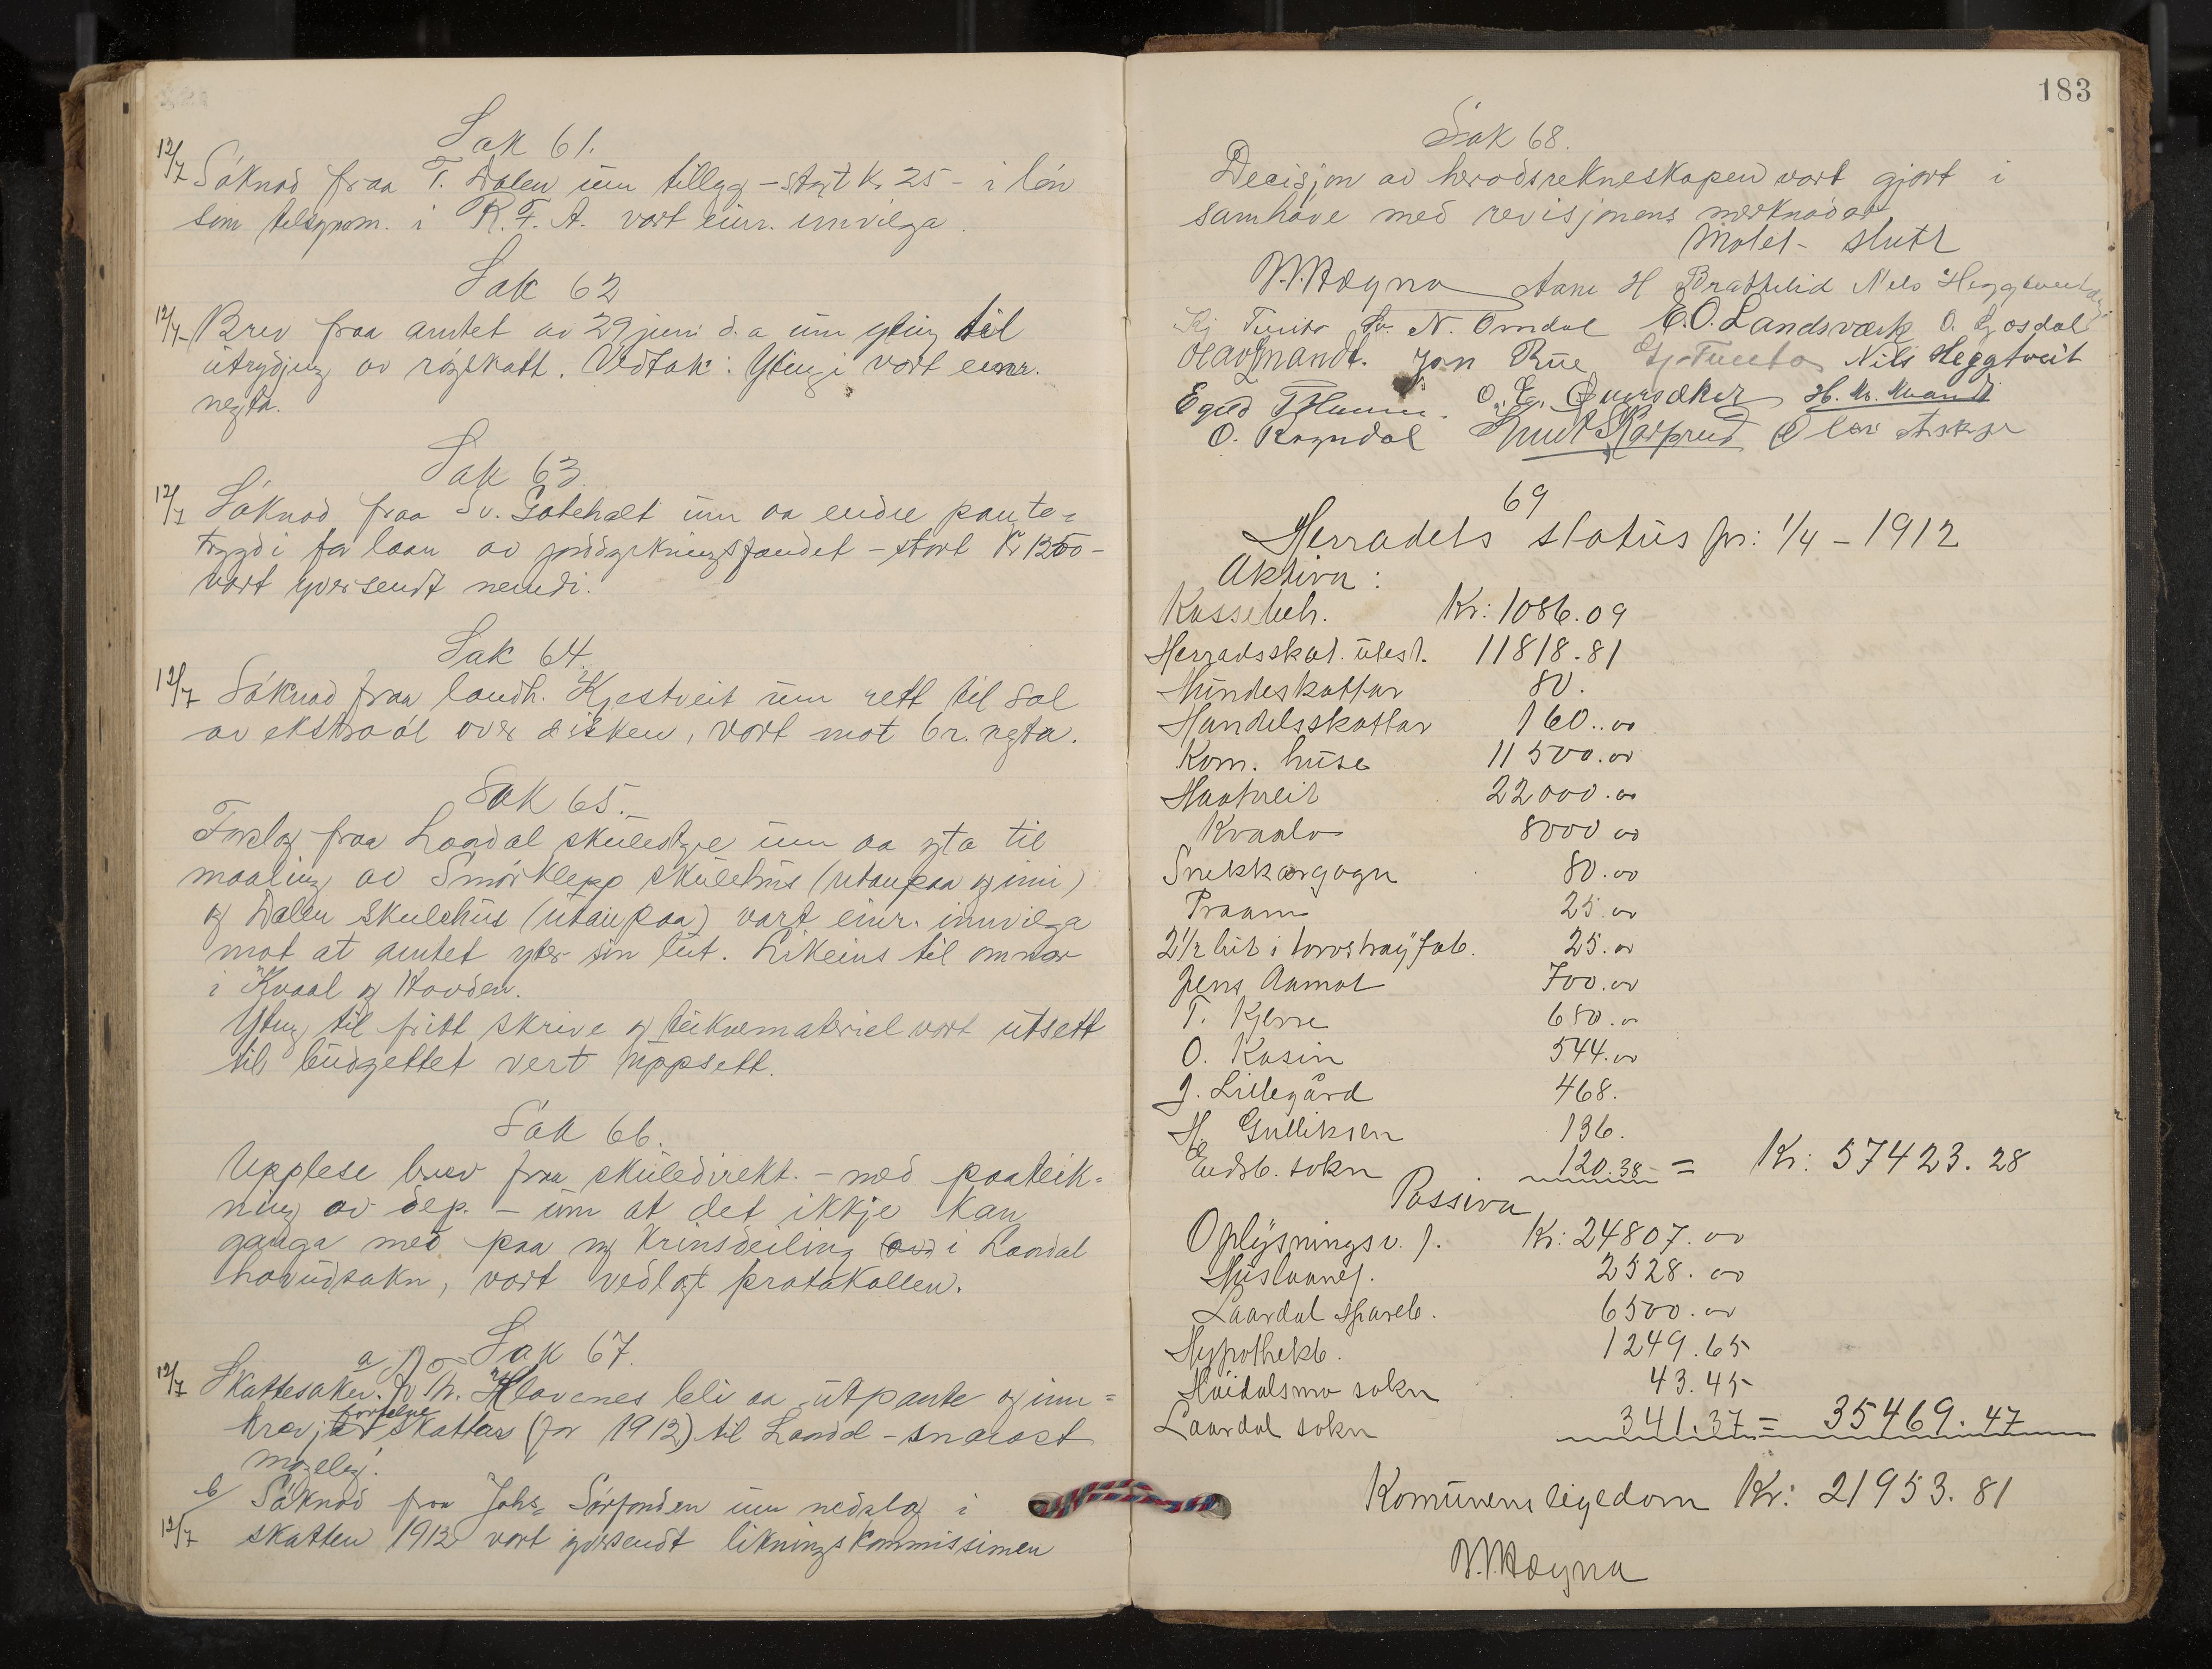 Sak 61.
12/7 Söknad fraa T. Dalen um tillegg - stort kr 25 - i lön
som telegrom. i R.F.A. vart einr. innvilga.
Sak 62
12/7 Brev fraa amtet av 29 juni d.a um yting til
utrydjing av röyskatt. Vedtak: Ytingi vart einr.
negta.
Sak 63.
12/7 Söknad fraa Sv. um aa endre pante=
trygdi for laan av jorddyrkningsfondet - stort Kr 1200 -
vart yversendt nemdi.
Sak 64.
12/7 Söknad fraa landh. Kjestveit um rett til sal
av ekstraöl over disken, vart mot 6 r. negta.
Sak 65.
Forslag fraa Laardal skulestyre um aa yta til
maaling av Smörklepp skulehus (utanpaa og inni)
og Dalen skulehus (utanpaa) vart einr. innvilga
mot at amtet yter sin lut. Likeins til omnar
i Kvaal og Hovden.
Yting til fritt skrive og teiknemateriel vart utsett
til budgettet vert uppsett.
Sak 66.
Upplese brev fraa skuledirekt. - med paateik=
ning av dep. - um at det ikkje kan
ganga med paa ny krinsdeiling i Laardal
hovudsokn, vart vedlagt protokollen.
Sak 67.
a
12/7 Skattesaker. Th. Klavenes beli aa utpante og inn=
krevja forfalne skattar (for 1912) til Laardal - snarast
mogeleg.
b/ Söknad fraa Johs. Sörfonden um nedslag i
12/7 skatten 1912 vart yversendt likningskommissionen
183
Sak 68.
Decisjon av heradsrekneskapen vart gjort i
samhöve med revisjonens merknader.
Mötet slutt
V.V. Höyna Aane H Brathelid Nils Heggtveit
N. Omdal E.O. Landsværk O. Gosdal
Olav Mandt. Jon Rue Nils Heggtveit
Egild O. G. H. M. Mandt
O. Rogndal Knut Skarprud Olav
69
Herradets status pr: 1/4 - 1912
Aktiva:
Kassebeh. Kr: 1086.09
Herradsskat. utest. 11818.81
Hundeskattar 80.
Handelsskattar 160..00
Kom. huse 11500.00
Haatveit 22000.00
Kvaale 8000 00
Snekkargogn 80.00
Praam 25.00
2 1/2 lut i torvströyfab. 25.00
Jens Aamot 700.00
T. Kjerre 680.00
O. Kasin 544.00
J. Lillegård 468.
H. Gulliksen 136.
Eidsb. sokn 120.38 = Kr: 57423.28
Passiva
Oplysningsv. f. Kr: 24807.00
Huslaanef. 2528.00
Laardal spareb. 6500.00
Hypothekb. 1249.65
Höidalsmo sokn 43.45
Laardal sokn 341.37 = 35469.47
Komunens eigedom Kr: 21953.81
V.V. Höyna